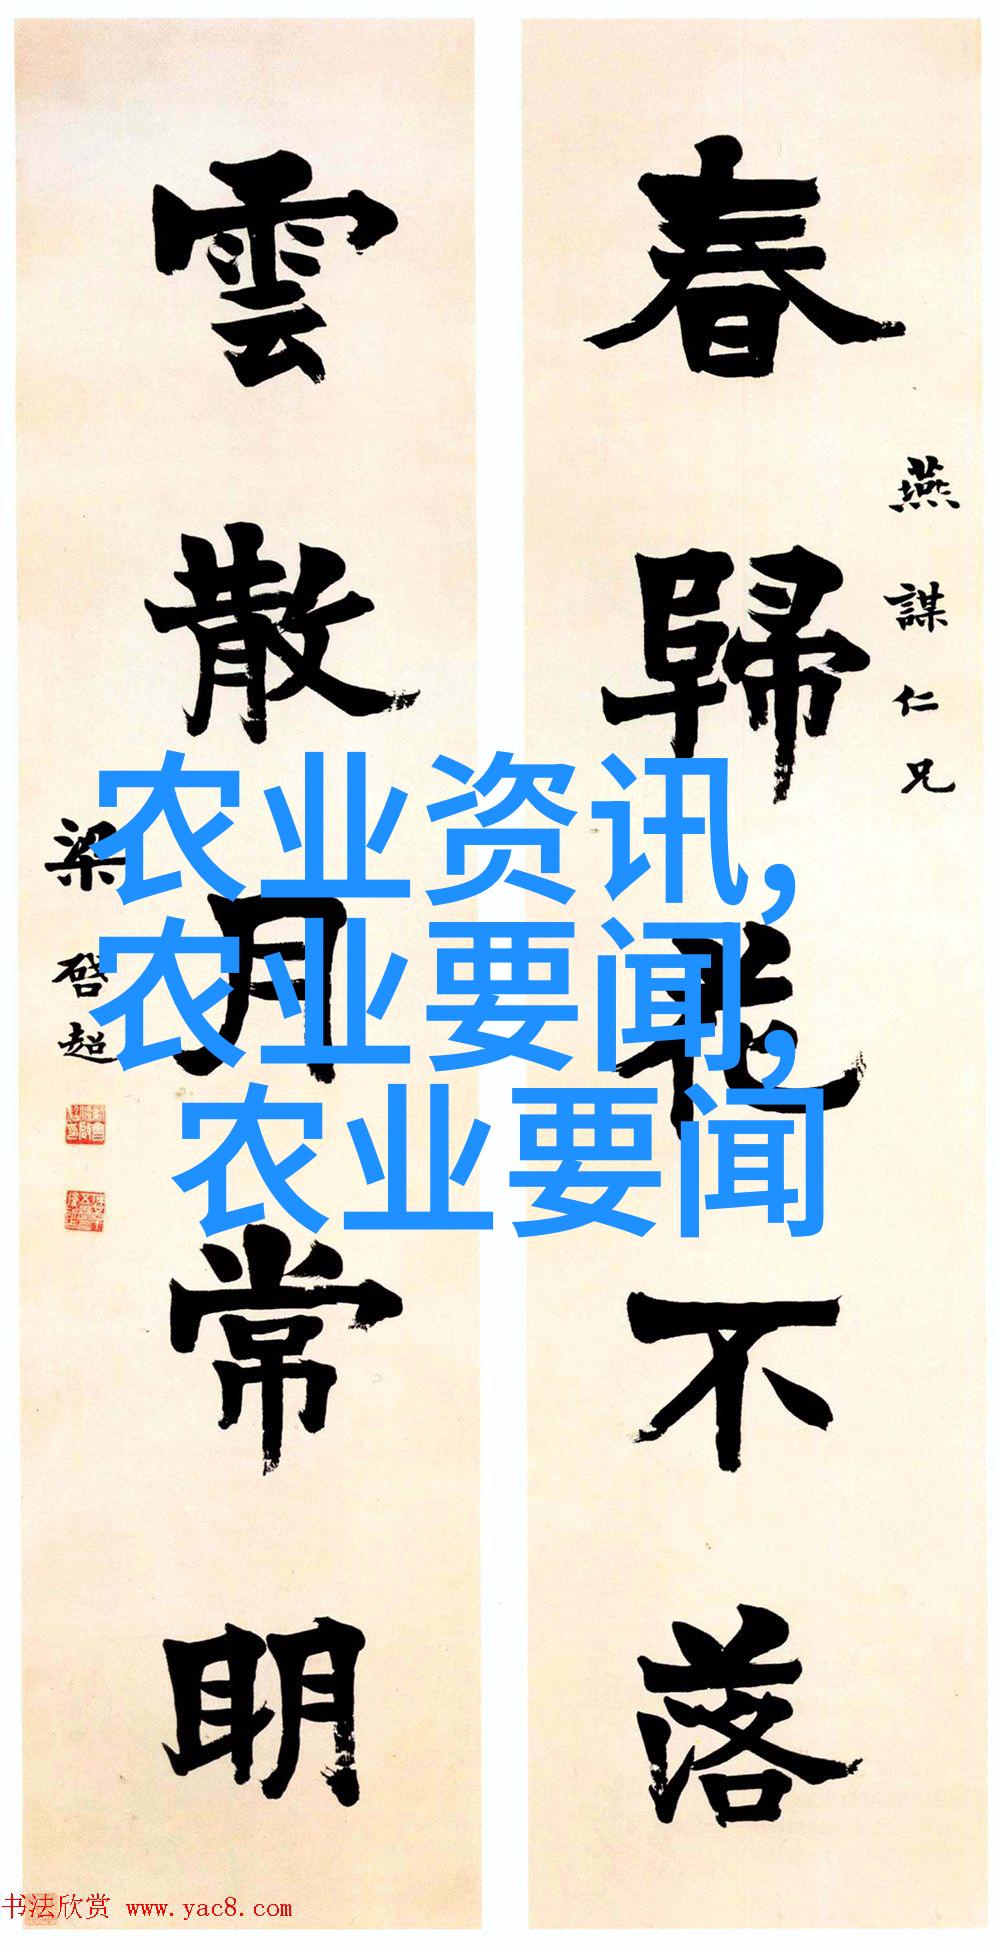 春歸花不落
燕謀仁兄
雲散月常明
梁啓超
农业资讯,
农业要闻,
农业要闻
书法欣赏 www.yac8.com